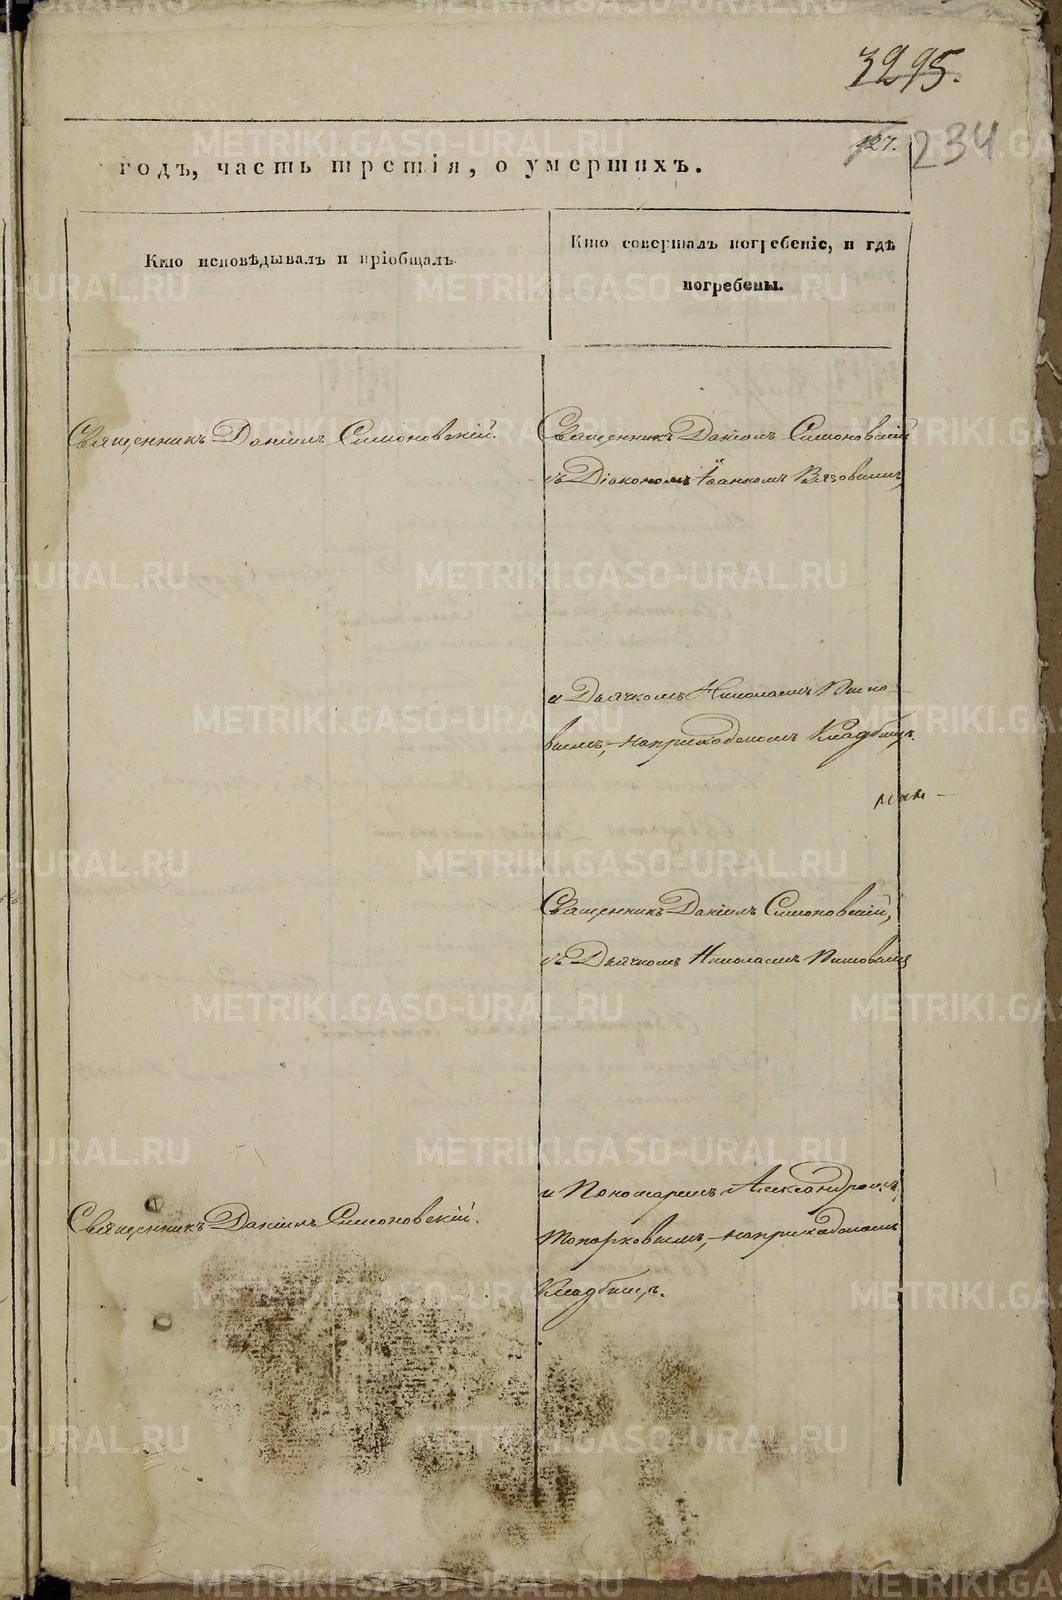 3295.
127. 234
годъ, часть третія, о умершихъ.
Кто исповѣдывалъ и пріобщалъ.
Кто совершалъ погребеніе, и гдѣ
погребены.
Священникъ Даніилъ Симоновскій.
Священникъ Даніилъ Симоновскій
съ Діакономъ Іоанномъ Вязовымъ,
и Дьячкомъ Николаемъ
вымъ, на приходскомъ Кладбищѣ.
Священникъ Даніилъ Симоновскій,
съ Дьячкомъ Николаемъ
и Пономаремъ Александромъ
Топорковымъ, на приходскомъ
Кладбищѣ.
Священникъ Даніилъ Симоновскій.
METRIKI.GASO-URAL.RU